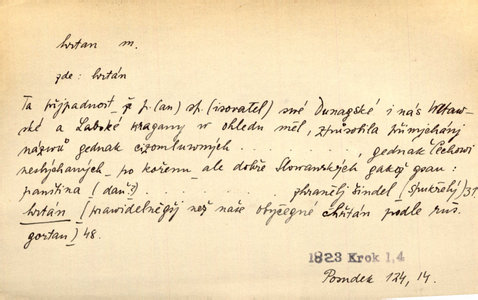 hrtan m.
zde: hrtán
Ta případnost, že p.(an) sp.(isovatel) své Dunagské i nás Wltaw-
ské a Labské kragany w ohledu měl, způsobila přimjchánj
názwů gednak cizomluwných . . . . . . . . . . , gednak Čechowi
neslýchaných, po kořenu ale dobře Slowanských gakož gsau:
panština (daň?) . . . . . . . . . . . zhranělj čindel (spukřelý) 31.
hrtán, [prawidelněgšj než naše obyčegné chřtán podle rus.
gortan,] 48.
1823 Krok I,4
Posudek 124, 14.